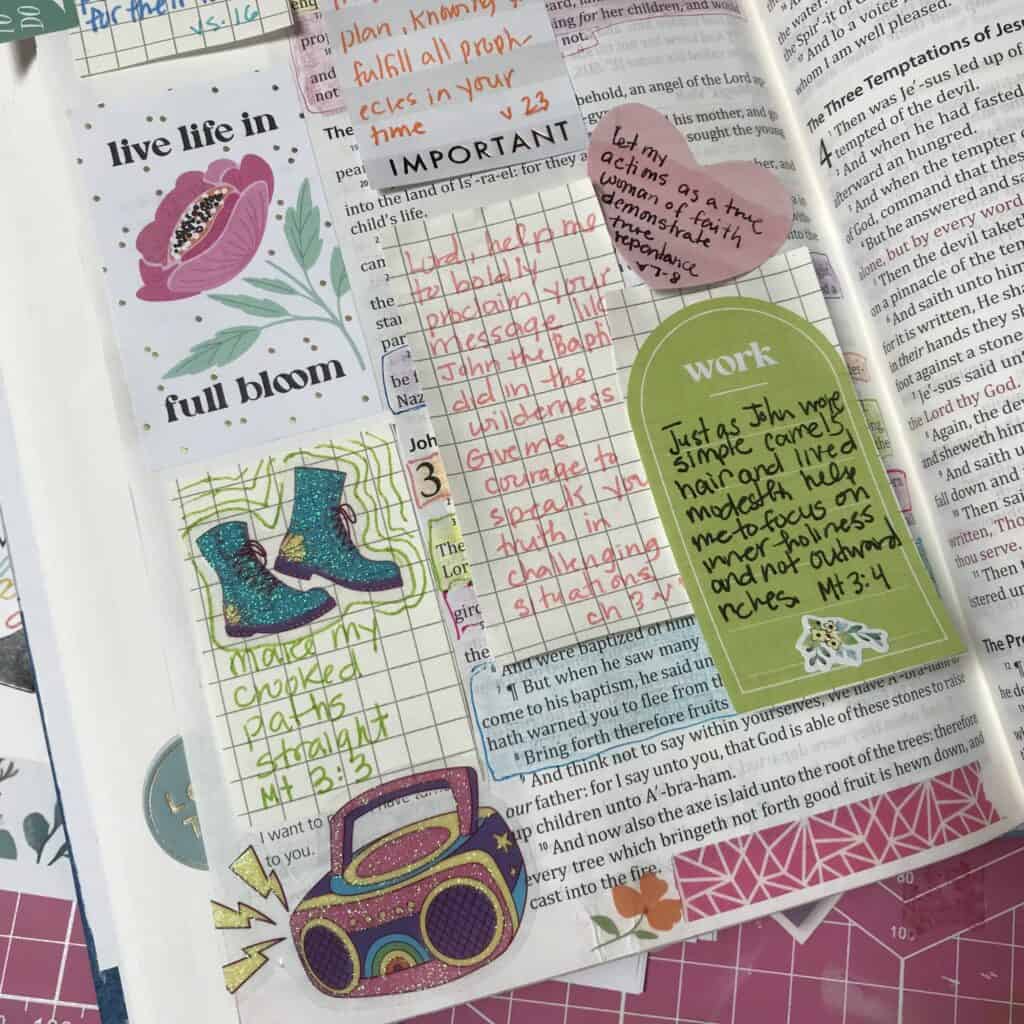 TO DO
for their
vs. 16
plan, knowing
fulfill all proph
ecies in your
time v 23
IMPORTANT
live life in
full bloom
let my
actions as a true
woman of faith
demonstrate
true
repentance
v 7-8
Lord, help me
to boldly
proclaim your
message like
John the Bapti
did in the
wilderness
Give me
courage to
speak you
truth in
challenging
situations
ch 3 v
work
Just as John wore
simple camels
hair and lived
modestly help
me to focus on
inner holiness
and not outward
riches. Mt 3:4
make my
crooked
paths
straight
Mt 3:3
I want to
to you.
for her children, and would
not.
behold, an angel of the Lord
his mother, and go
sought the young
into the land of Is'-ra-el: for they a
child's life.
Joh
3
The
Lor
gird
the
And were baptized of him
¶ But when he saw many
come to his baptism, he said un
hath warned you to flee from th
8 Bring forth therefore fruits
9 And think not to say within yourselves, We have A'-bra-ham to
our father: for I say unto you, that God is able of these stones to raise
up children unto A'-bra-ham.
10 And now also the axe is laid unto the root of the trees: therefore
every tree which bringeth not forth good fruit is hewn down, and
cast into the fire.
the water:
the Spir-it of
And lo a voice
whom I am well pleased.
The Three Temptations of Jesu
4 Then was Je'-sus led up of
tempted of the devil.
2 And when he had fasted
afterward an hungred.
3 And when the tempter
of God, command that these
4 But he answered and sai
alone, but by every word
5 Then the devil taketh
on a pinnacle of the tem
6 And saith unto him
for it is written, He sha
in their hands they sh
foot against a stone
7 Je'-sus said un
the Lord thy God.
8 Again, the dev
and sheweth him
9 And saith u
fall down and
10 Then said
written, Tho
thou serve.
11 Then t
istered un
The Pre
12